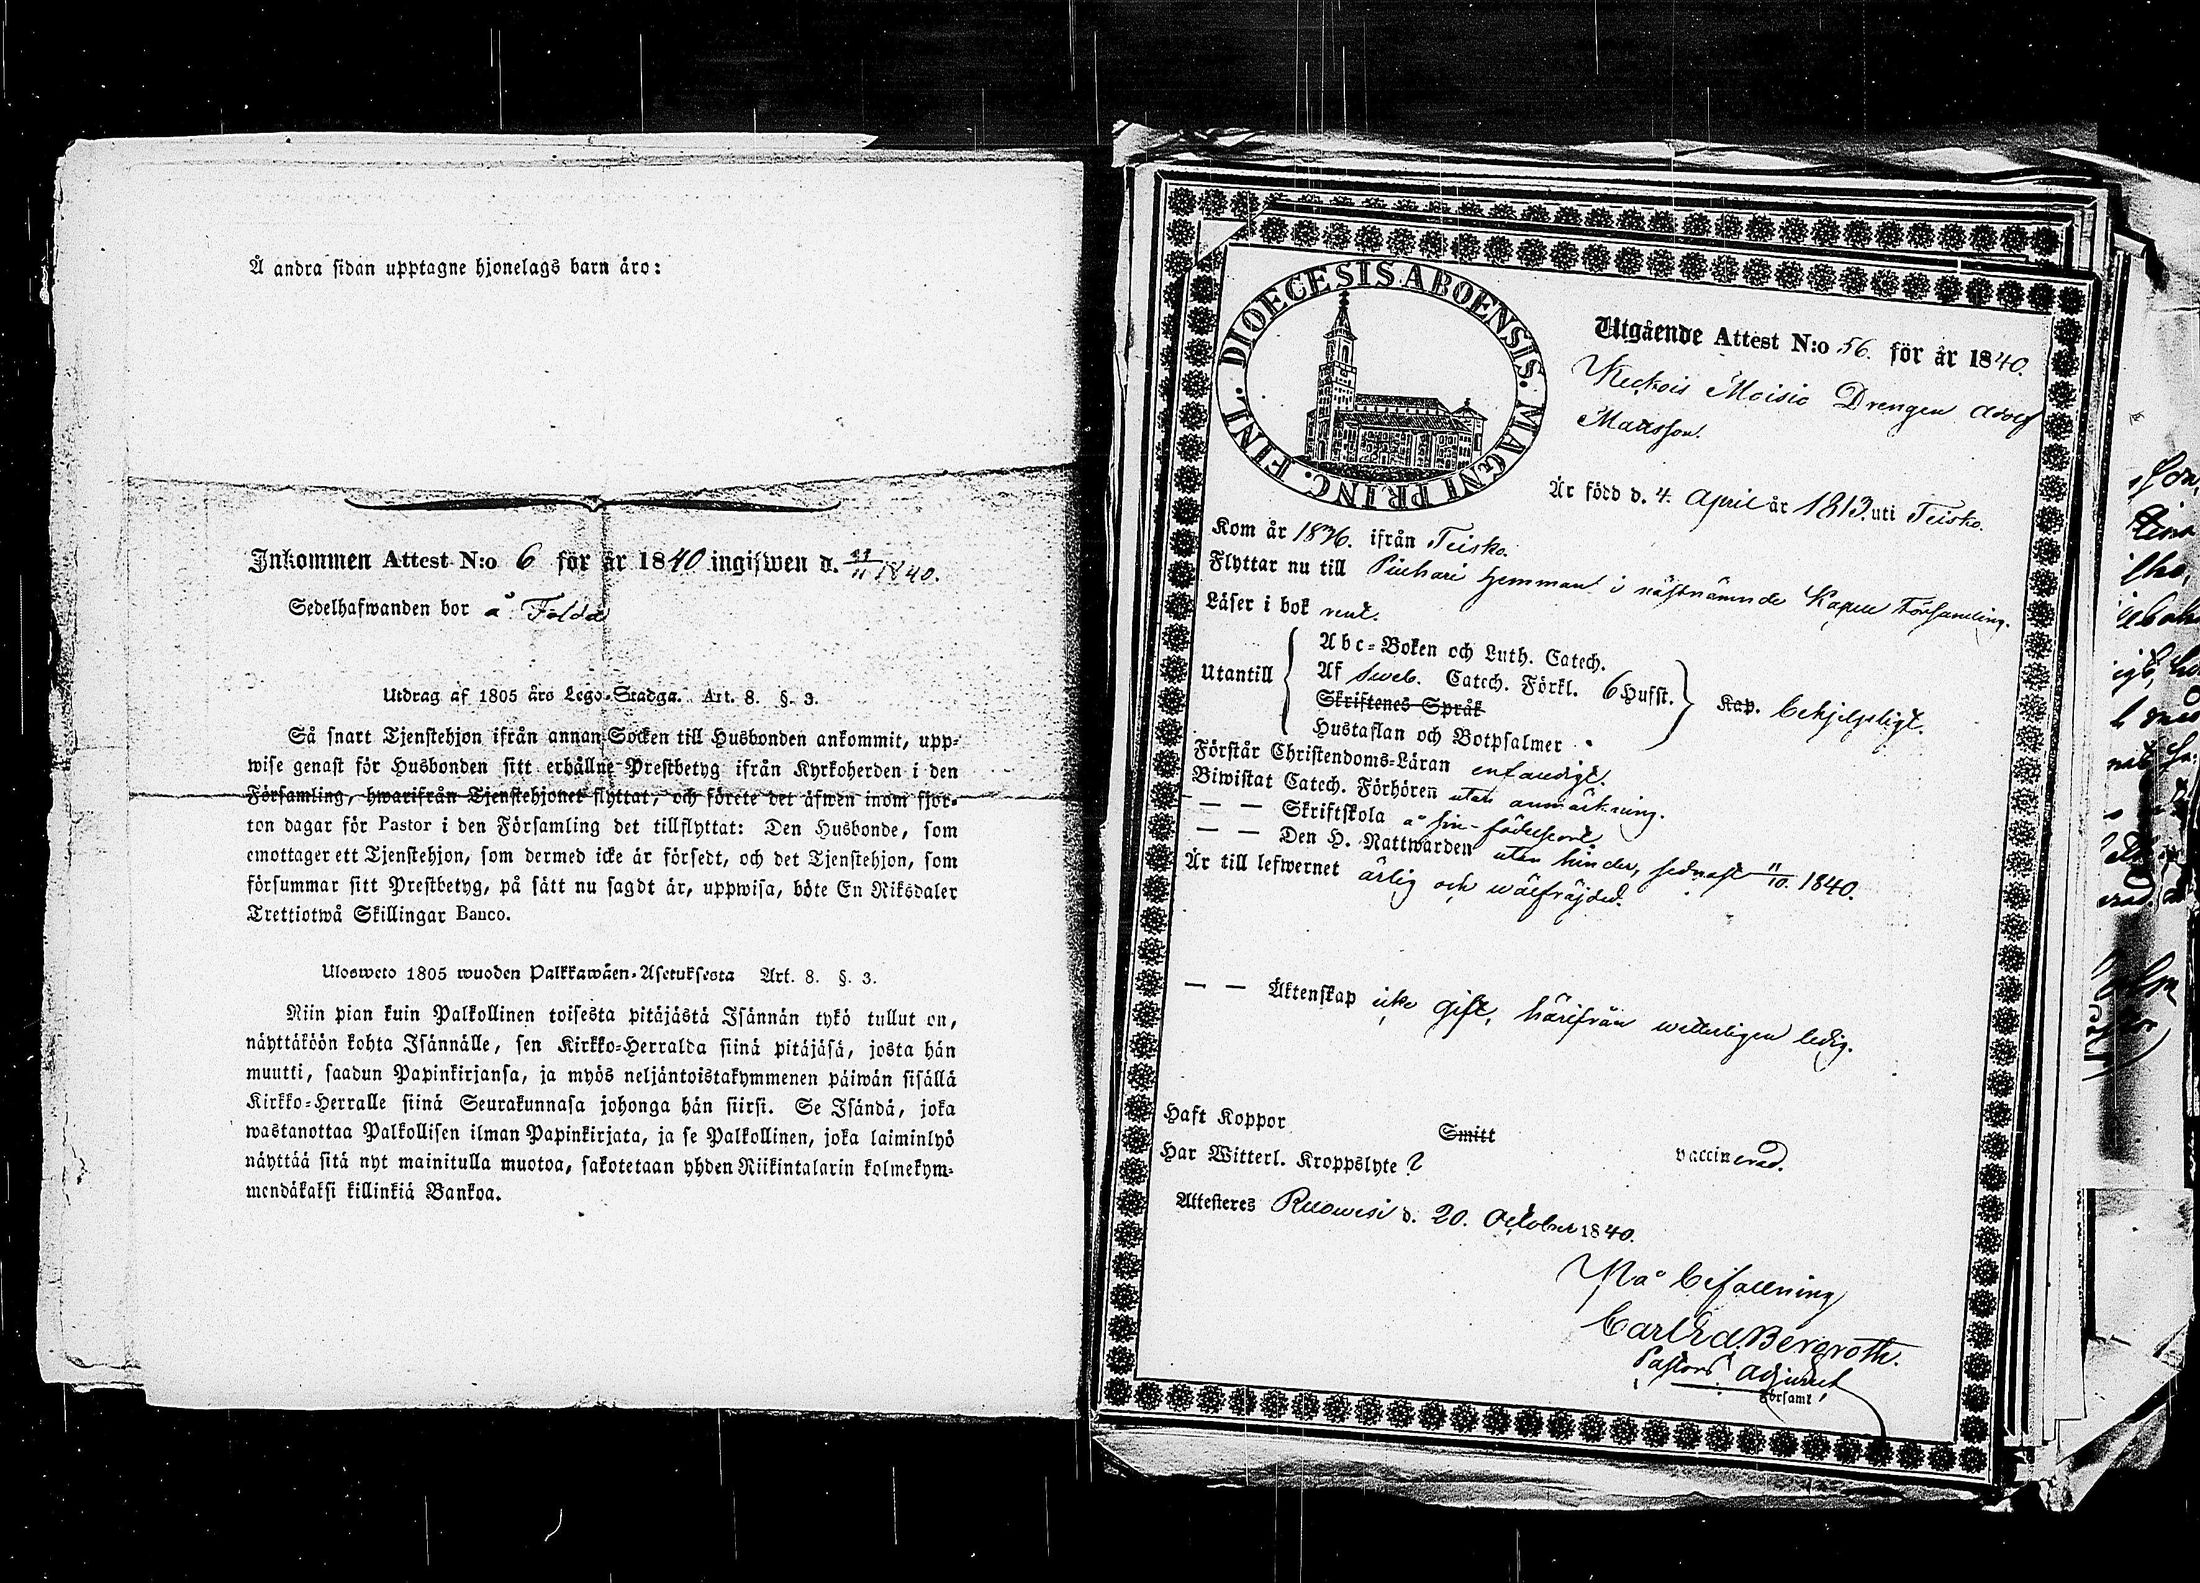 Å andra sidan upptagne hjonelags barn äro:
Inkommen Attest N:o 6 för år 1840 ingifwen d. 11/11 1840.
Sedelhafwanden bor å Folda
Utdrag af 1805 års Lego-Stadga. Art. 8. §. 3.
Så snart Tjenstehjon ifrån annan Socken till Husbonden ankommit, upp-
wise genast för Husbonden sitt erhållne Prestbetyg ifrån Kyrkoherden i den
Församling, hwarifrån Tjenstehjonet flyttat, och förete det äfwen inom fjor-
ton dagar för Pastor i den Församling det tillflyttat: Den Husbonde, som
emottager ett Tjenstehjon, som dermed icke är försedt, och det Tjenstehjon, som
försummar sitt Prestbetyg, på sätt nu sagdt är, uppwisa, böte En Riksdaler
Trettiotwå Skillingar Banco.
Ulosweto 1805 wuoden Palkkawäen-Asetuksesta Art. 8. §. 3.
Niin pian kuin Palkollinen toisesta pitäjästä Isännän tykö tullut on,
näyttäköön kohta Isännälle, sen Kirkko-Herralda siinä pitäjäsä, josta hän
muutti, saadun Papinkirjansa, ja myös neljäntoistakymmenen päiwän sisällä
Kirkko-Herralle siinä Seurakunnasa johonga hän siirsi. Se Isändä, joka
wastanottaa Palkollisen ilman Papinkirjata, ja se Palkollinen, joka laiminlyö
näyttää sitä nyt mainitulla muotoa, sakotetaan yhden Riikintalarin kolmekym-
mendäkaksi killinkiä Bankoa.
DIOECESIS ABOENSIS. MAGNI PRINC. FINL.
Utgående Attest N:o 56. för år 1840.
Moisio Drengen Adolf
Mattsson.
Är född d. 4. April år 1813. uti Teisko.
Kom år 1836. ifrån Teisko.
Flyttar nu till Pinhari hemman i nästnämnde Kapell Församling.
Läser i bok rent.
Utantill
Abc-Boken och Luth. Catech.
Af Sweb. Catech. Förkl. 6 Hufst.
Skriftenes Språk
Hustaflan och Botpsalmer
Kap. behjelpligt.
Förstår Christendoms-Läran enfaldigt.
Biwistat Catech. Förhören utan anmärkning.
— — Skriftskola å sin födelseort.
— — Den H. Nattwarden utan hinder, sednast 11/10. 1840.
Är till lefwernet ärlig och wälfräjdad.
— — Äktenskap icke gift, härifrån witterligen ledig.
Haft Koppor Smitt vaccinerad.
Har Witterl. Kroppslyte ?
Attesteres Ruowesi d. 20. October 1840.
På befallning
Carl Ed. Bergroth.
Pastors Adjunct
Församl